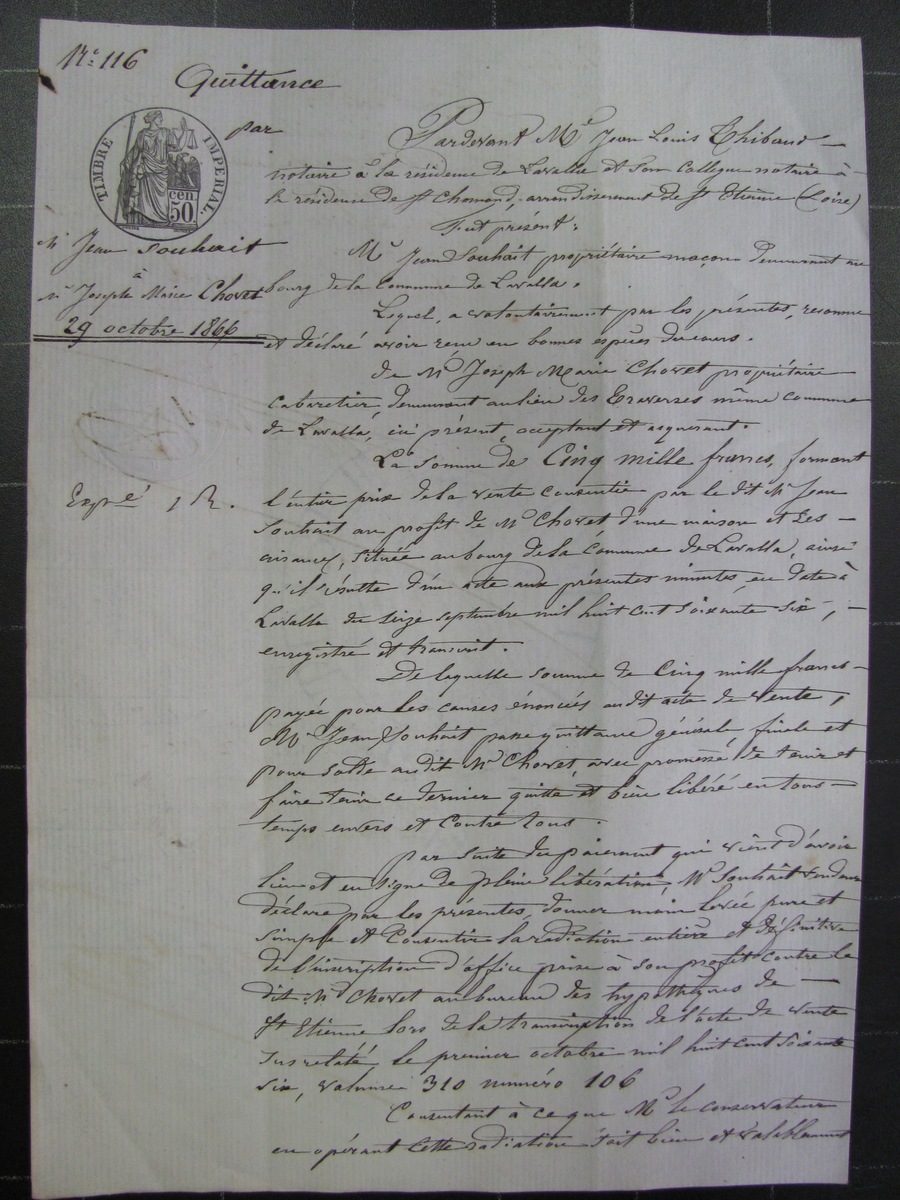 N.° 116
Quittance
TIMBRE IMPERIAL
cen. 50.
par
Mr Jean Souhait
à
Mr Joseph Marie Chovet
29 octobre 1866
Expé 1 R.
Pardevant Me Jean Louis Thibaud
notaire à la résidence de Lavalla et son collègue notaire à
la résidence de St Chamond, arrondissement de St Etienne (Loire)
Fut présent :
Mr Jean Souhait propriétaire maçon demeurant au
bourg de la commune de Lavalla.
Lequel, a volontairement par les présentes, reconnu
et déclaré avoir reçu en bonnes espèces du cours.
de Mr Joseph Marie Chovet propriétaire
cabaretier demeurant au lieu des Traverses même commune
de Lavalla, ici présent, acceptant et requerant.
La somme de Cinq mille francs, formant
l'entier prix de la vente consentie par le dit Mr Jean
Souhait au profit de Mr Chovet, d'une maison et ses
aisances, située au bourg de la commune de Lavalla, ainsi
qu'il résulte d'un acte aux présentes minutes, en date à
Lavalla du seize septembre mil huit cent soixante six,
enregistré et transcrit.
De laquelle somme de Cinq mille francs
payée pour les causes énoncées au dit acte de vente,
Mr Jean Souhait passe quittance générale finale et
pour solde au dit Mr Chovet, avec promesse de tenir et
faire tenir ce dernier quitte et bien libéré en tous
temps envers et contre tous.
par suite du paiement qui vient d'avoir
lieu et en signe de pleine libération, Mr Souhait vendeur
déclare par les présentes, donner main levée pure et
simple et consentir la radiation entière et définitive
de l'inscription d'office prise à son profit contre le
dit Mr Chovet au bureau des hypothèques de
St Etienne lors de la transcription de l'acte de vente
susrelaté, le premier octobre mil huit cent soixante
six, volume 310 numéro 106
Consentant à ce que Mr le conservateur
en opérant cette radiation soit bien et valablement